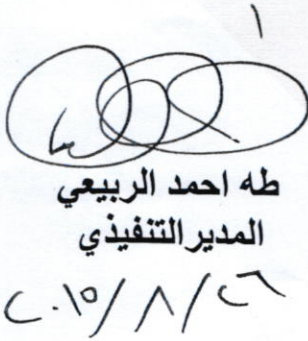 طه احمد الربيعي
المدير التنفيذي
٢٠١٥/٨/٢٦